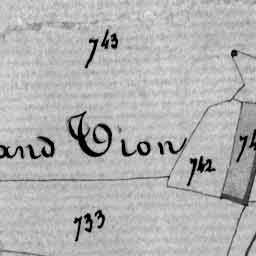 743
and Vion
742
74
733